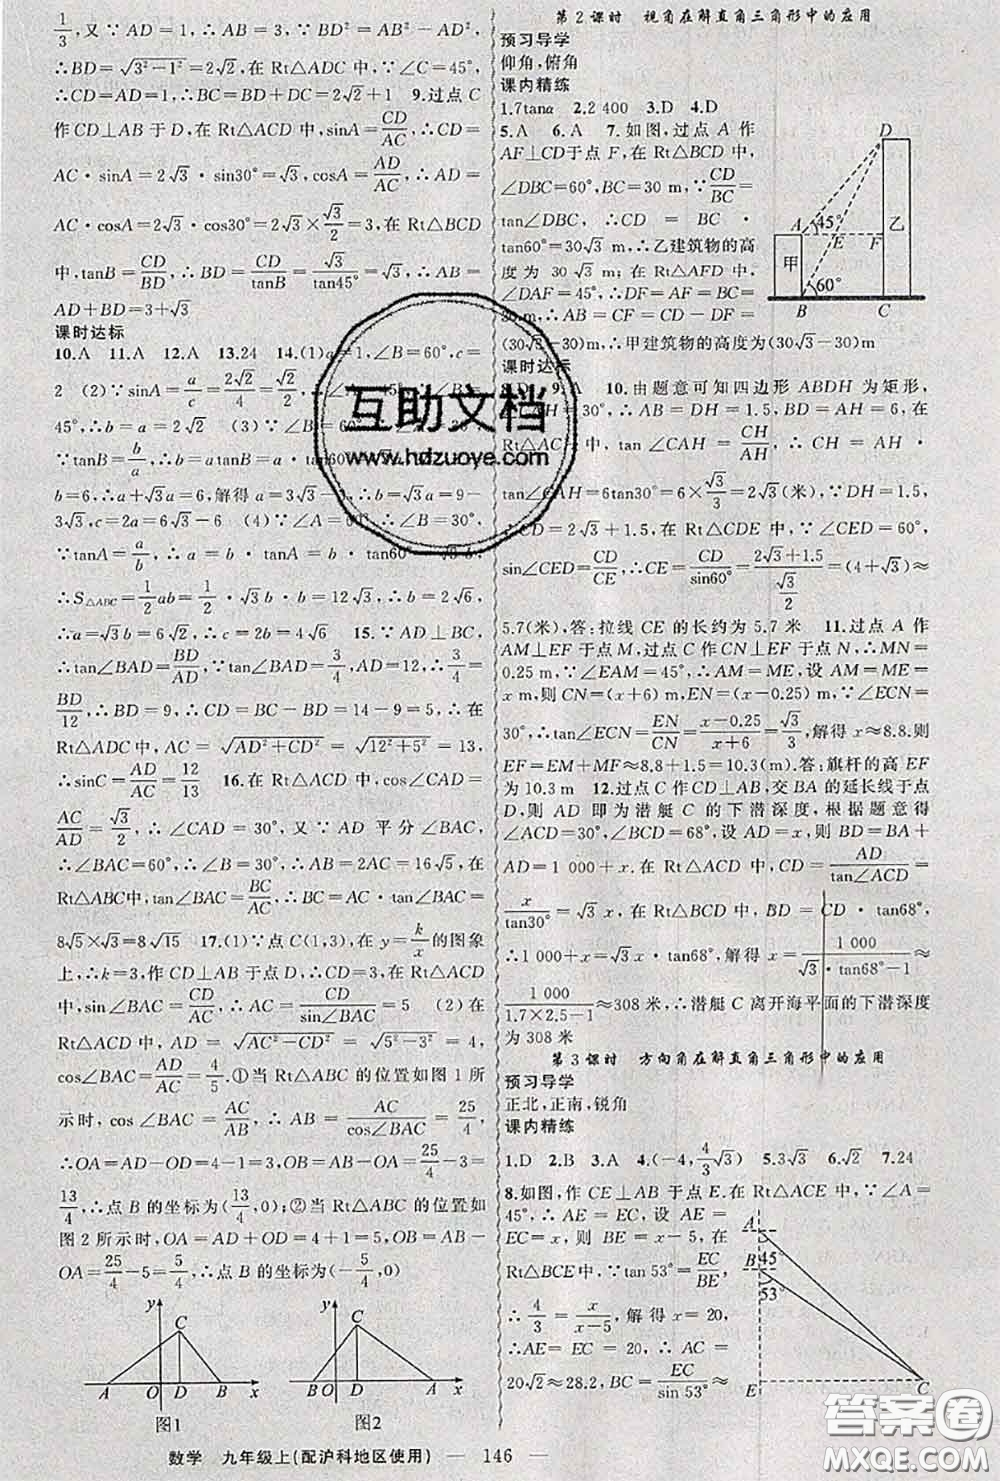 1/3,又∵AD=1,∴AB=3,∵BD²=AB²-AD²,
∴BD=√(3²-1²)=2√2,在Rt△ADC中,∵∠C=45°,
∴CD=AD=1,∴BC=BD+DC=2√2+1 9.过点C
作CD⊥AB于D,在Rt△ACD中,sinA=CD/AC,∴CD=
AC·sinA=2√3·sin30°=√3,cosA=AD/AC,∴AD=
AC·cosA=2√3·cos30°=2√3×√3/2=3,在Rt△BCD
中,tanB=CD/BD,∴BD=CD/tanB=√3/tan45°=√3,∴AB=
AD+BD=3+√3
课时达标
10.A 11.A 12.A 13.24 14.(1)a=1,∠B=60°,c=
2 (2)∵sinA=a/c=2√2/4=√2/2,∴∠A=
45°,∴b=a=2√2 (3)∵∠B=
∵tanB=b/a,∴b=a
b=6,∴a+√3a=6,解得a=3√3-3,∴b=9-
3√3,c=2a=6√3-6 (4)∵∠A=60°,∴∠B=30°,
∵tanA=a/b,∴a=b·tanA=b·tan60°=√3b,
∴S△ABC=1/2ab=1/2·√3b·b=12√3,∴b=2√6,
∴a=√3b=6√2,∴c=2b=4√6 15.∵AD⊥BC,
∴tan∠BAD=BD/AD,∵tan∠BAD=3/4,AD=12,∴3/4=
BD/12,∴BD=9,∴CD=BC-BD=14-9=5,∴在
Rt△ADC中,AC=√(AD²+CD²)=√(12²+5²)=13,
∴sinC=AD/AC=12/13 16.在Rt△ACD中,cos∠CAD=
AC/AD=√3/2,∴∠CAD=30°,又∵AD平分∠BAC,
∴∠BAC=60°,∴∠B=30°,∴AB=2AC=16√5,在
Rt△ABC中,tan∠BAC=BC/AC,∴BC=AC·tan∠BAC=
8√5×√3=8√15 17.(1)∵点C(1,3),在y=k/x的图象
上,∴k=3,作CD⊥AB于点D,在Rt△ACD
中,sin∠BAC=CD/AC,∴AC=CD/sin∠BAC=5 (2)在
Rt△ACD中,AD=√(AC²-CD²)=√(5²-3²)=4,
cos∠BAC=AD/AC=4/5.①当Rt△ABC的位置如图1所
示时,cos∠BAC=AC/AB,∴AB=AC/cos∠BAC=25/4,
∴OA=AD-OD=4-1=3,OB=AB-OA=25/4-3=
13/4,∴点B的坐标为(13/4,0);②当Rt△ABC的位置如
图2所示时,OA=AD+OD=4+1=5,OB=AB-
OA=25/4-5=5/4,∴点B的坐标为(-5/4,0)
y C A O D B x
图1
y C B O D A x
图2
第2课时 视角在解直角三角形中的应用
预习导学
仰角,俯角
课内精练
1.7tanα 2.2400 3.D 4.D
5.A 6.A 7.如图,过点A作
AF⊥CD于点F,在Rt△BCD中,
∠DBC=60°,BC=30 m,∵CD/BC=
tan∠DBC,∴CD=BC·
tan60°=30√3 m,∴乙建筑物的高
度为30√3 m;在Rt△AFD中,
∠DAF=45°,∴DF=AF=BC=
30 m,∴AB=CF=CD-DF=
(30√3-30)m,∴甲建筑物的高度为(30√3-30)m
D A 45° E F 乙 甲 60° B C
课时达标
8.D 9.A 10.由题意可知四边形ABDH为矩形,
∠CAH=30°,∴AB=DH=1.5,BD=AH=6,在
Rt△ACH中,tan∠CAH=CH/AH,∴CH=AH·
tan∠CAH=6tan30°=6×√3/3=2√3(米),∵DH=1.5,
∴CD=2√3+1.5,在Rt△CDE中,∵∠CED=60°,
sin∠CED=CD/CE,∴CE=CD/sin60°=(2√3+1.5)/(√3/2)=(4+√3)≈
5.7(米),答:拉线CE的长约为5.7米 11.过点A作
AM⊥EF于点M,过点C作CN⊥EF于点N,∴MN=
0.25 m,∵∠EAM=45°,∴AM=ME,设AM=ME=
x m,则CN=(x+6)m,EN=(x-0.25)m,∵∠ECN=
30°,∴tan∠ECN=EN/CN=(x-0.25)/(x+6)=√3/3,解得x≈8.8.则
EF=EM+MF≈8.8+1.5=10.3(m).答:旗杆的高EF
为10.3 m 12.过点C作CD⊥AB,交BA的延长线于点
D,则AD即为潜艇C的下潜深度,根据题意得
∠ACD=30°,∠BCD=68°,设AD=x,则BD=BA+
AD=1 000+x.在Rt△ACD中,CD=AD/tan∠ACD=
x/tan30°=√3x,在Rt△BCD中,BD=CD·tan68°,
∴1 000+x=√3x·tan68°,解得x=1 000/(√3·tan68°-1)≈
1 000/(1.7×2.5-1)≈308米,∴潜艇C离开海平面的下潜深度
为308米
第3课时 方向角在解直角三角形中的应用
预习导学
正北,正南,锐角
课内精练
1.D 2.B 3.A 4.(-4,4/3√3) 5.3√3 6.√2 7.24
8.如图,作CE⊥AB于点E.在Rt△ACE中,∵∠A=
45°,∴AE=EC,设AE=
EC=x,则BE=x-5,在
Rt△BCE中,∵tan 53°=EC/BE,
∴4/3=x/(x-5),解得x=20,
∴AE=EC=20,∴AC=
20√2≈28.2,BC=EC/sin 53°≈
A 45° B 53° E C
互助文档
www.hdzuoye.com
答案圈
MXQE.COM
数学 九年级上(配沪科地区使用) — 146 —